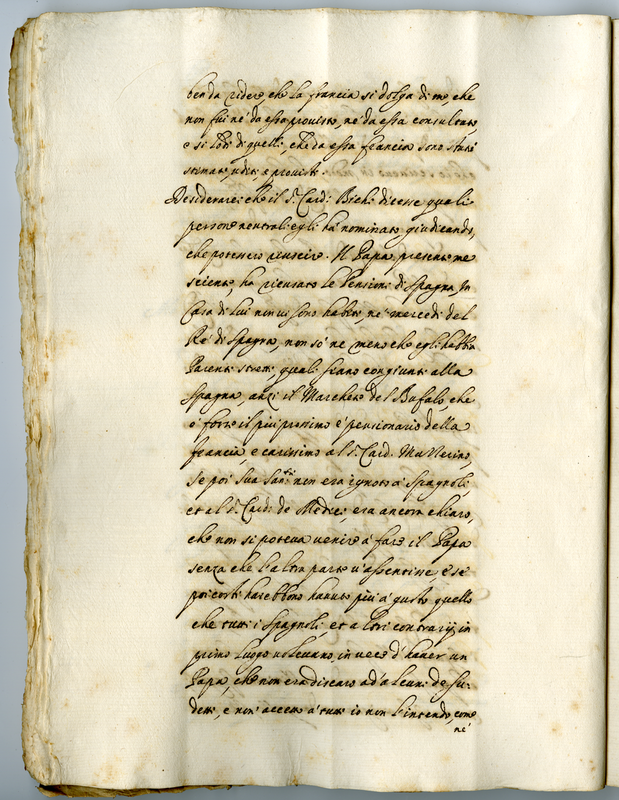 ben da ridere, che la francia si dolga di me, che
non fui ne' da essa provisto, ne' da essa consultato,
e si lodi di quelli, che da essa francia sono stati
stimati, uditi, e provisti.
Desiderarei che il S.r Card: Bichi dicesse quali
persone neutrali egli ha' nominato, giudicando,
che potessero riuscire. Il Papa presente me
sciente, ha ricusato le Pensioni di Spagna, In
Casa di lui non vi sono habiti, ne' mercedi del
Re' di Spagna, non so' ne meno che egli habbia
Parenti stretti, quali siano congiunti alla
Spagna, anzi il Marchese del Bufalo, che
e' forse il piu prossimo e' pensionario della
francia, e carissimo al S.r Card. Mazzerino,
se poi sua San.tà non era ignoto a' Spagnoli,
et al S.r Card: de Medici, era ancora chiaro,
che non si poteva venire a' fare il Papa
senza che l'altra parte v'assentisse, e se
poi costi harebbono havuto più a' gusto quello
che tutti i Spagnoli, et altri contrarij in
primo luogo volevano, in vece d'haver un
Papa, che non era discaro ad' alcuni de Su-
detti, e non' accetto a' tutti io non l'intendo, come
ne'